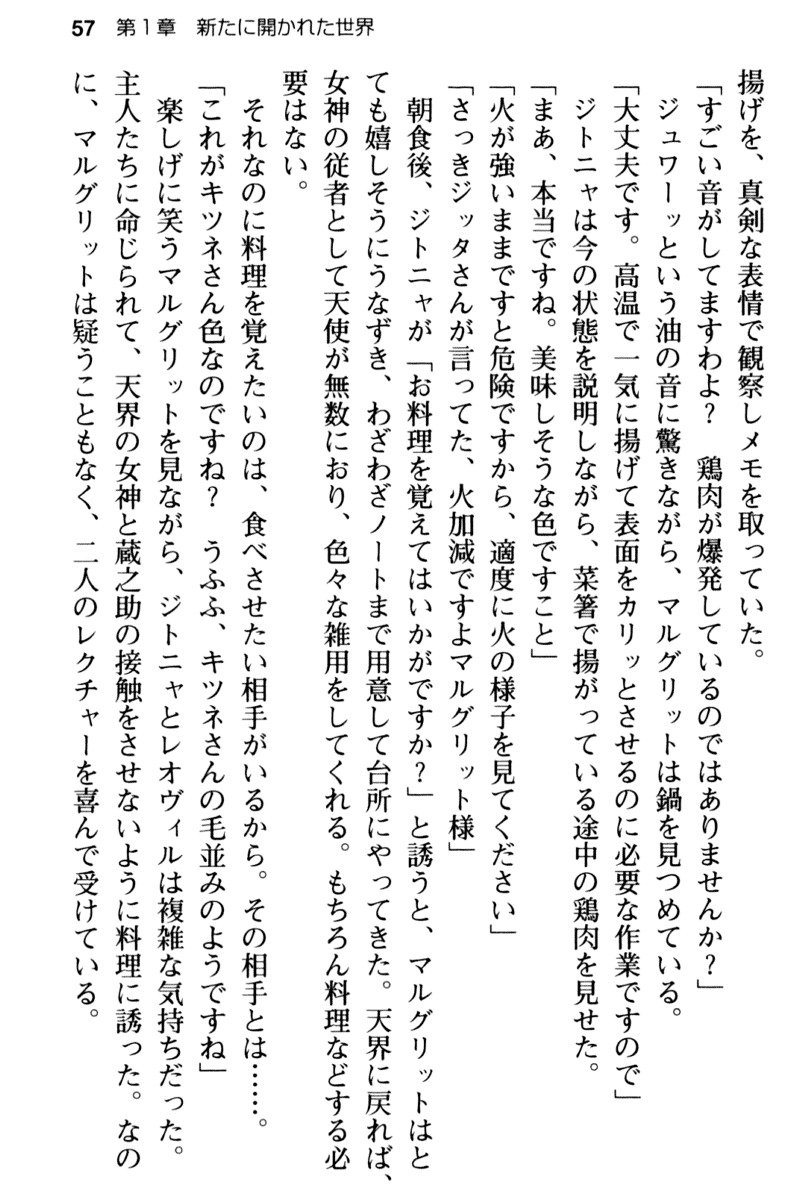 57 第1章 新たに開かれた世界
揚げを、真剣な表情で観察しメモを取っていた。
「すごい音がしてますわよ？ 鶏肉が爆発しているのではありませんか？」
ジュワーッという油の音に驚きながら、マルグリットは鍋を見つめている。
「大丈夫です。高温で一気に揚げて表面をカリッとさせるのに必要な作業ですので」
ジトニャは今の状態を説明しながら、菜箸で揚がっている途中の鶏肉を見せた。
「まあ、本当ですね。美味しそうな色ですこと」
「火が強いままですと危険ですから、適度に火の様子を見てください」
「さっきジッタさんが言ってた、火加減ですよマルグリット様」
朝食後、ジトニャが「お料理を覚えてはいかがですか？」と誘うと、マルグリットはと
ても嬉しそうにうなずき、わざわざノートまで用意して台所にやってきた。天界に戻れば、
女神の従者として天使が無数におり、色々な雑用をしてくれる。もちろん料理などする必
要はない。
それなのに料理を覚えたいのは、食べさせたい相手がいるから。その相手とは……。
「これがキツネさん色なのですね？ うふふ、キツネさんの毛並みのようですね」
楽しげに笑うマルグリットを見ながら、ジトニャとレオヴィルは複雑な気持ちだった。
主人たちに命じられて、天界の女神と蔵之助の接触をさせないように料理に誘った。なの
に、マルグリットは疑うこともなく、二人のレクチャーを喜んで受けている。